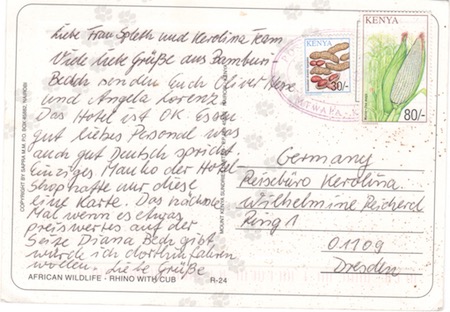 Liebe Frau Spleth und Kerolina Team
Viele liebe Grüße aus Bamburi-
Beach senden Euch Oliver
und Angela Lorenz.
Das Hotel ist OK. Essen
gut liebes Personal was
auch gut Deutsch spricht.
Einziges Manko der Hotel-
Shop hatte nur diese
eine Karte. Das nächste
Mal wenn es etwas
preiswertes auf der
Seite Diana Beach gibt
würde ich dorthin fahren
wollen. Liebe Grüße
AFRICAN WILDLIFE - RHINO WITH CUB
R-24
COPYRIGHT BY SAPRA M.M. P.O. BOX 45982, NAIROBI
MOUNT KENYA SUNDRIES
KENYA
30/-
KENYA
80/-
MTWAPA
Germany
Reisebüro Kerolina
Wilhelmine Reichard
Ring 1
01109
Dresden